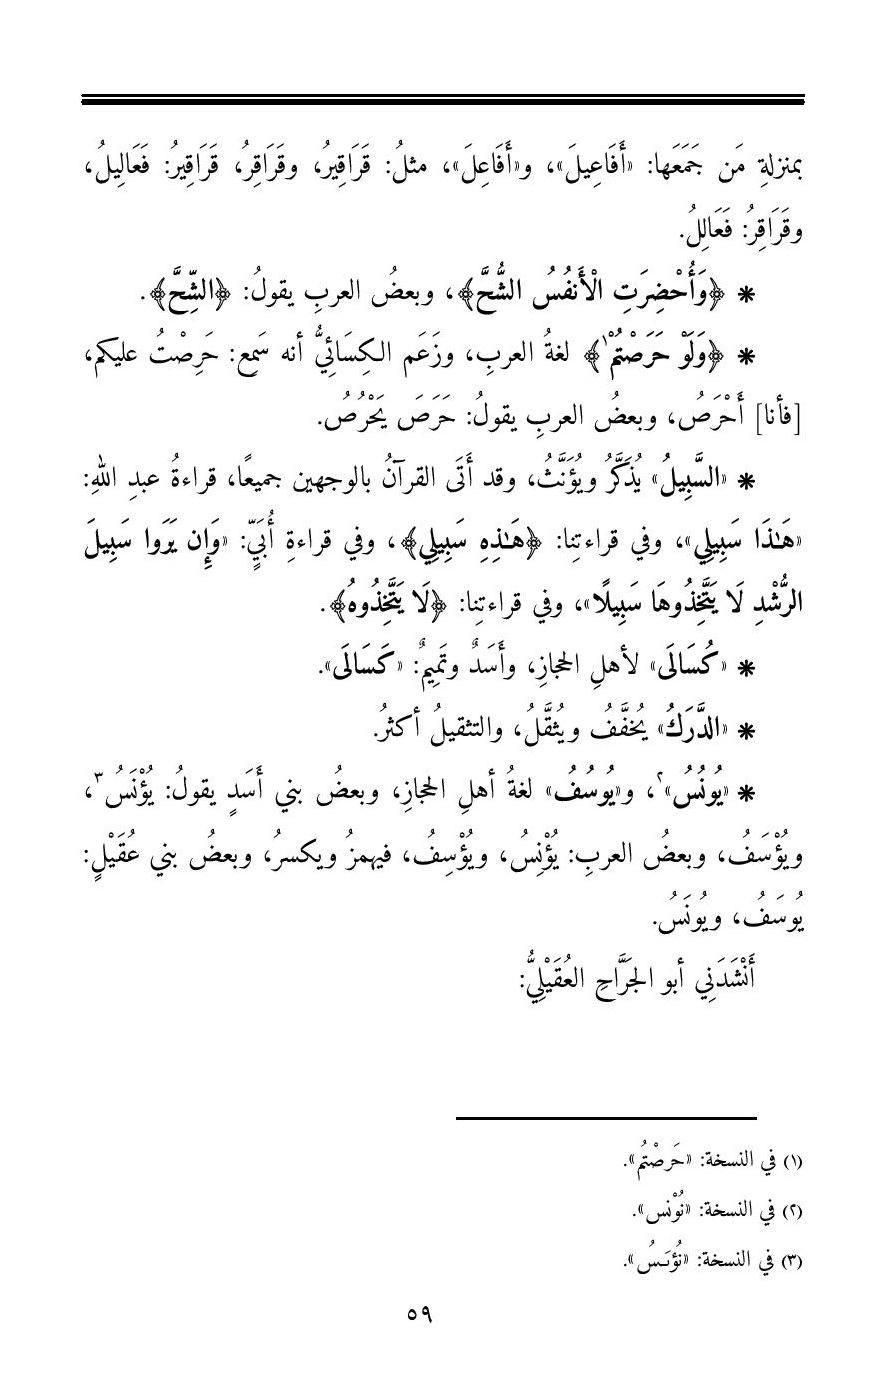 بمنزلةِ مَن جَمَعَها: «أَفَاعِيلَ»، و«أَفَاعِلَ»، مثلُ: قَرَاقِيرُ، وقَرَاقِرُ، قَرَاقِيرُ: فَعَالِيلُ،
وقَرَاقِرُ: فَعَالِلُ.
* ﴿وَأُحْضِرَتِ الْأَنفُسُ الشُّحَّ﴾، وبعضُ العربِ يقولُ: ﴿الشِّحَّ﴾.
* ﴿وَلَوْ حَرَصْتُمْ١﴾ لغةُ العربِ، وزَعَم الكِسَائِيُّ أنه سَمِع: حَرِصْتُ عليكم،
[فأنا] أَحْرَصُ، وبعضُ العربِ يقولُ: حَرَصَ يَحْرُصُ.
* «السَّبِيلُ» يُذَكَّرُ ويُؤَنَّثُ، وقد أَتَى القرآنُ بالوجهين جميعًا، قراءةُ عبدِ اللهِ:
«هَـٰذَا سَبِيلِي»، وفي قراءتِنا: ﴿هَـٰذِهِ سَبِيلِي﴾، وفي قراءةِ أُبَيٍّ: «وَإِن يَرَوا سَبِيلَ
الرُّشْدِ لَا يَتَّخِذُوهَا سَبِيلًا»، وفي قراءتِنا: ﴿لَا يَتَّخِذُوهُ﴾.
* «كُسَالَى» لأهلِ الحجازِ، وأَسَدٌ وتَمِيمٌ: «كَسَالَى».
* «الدَّرَكُ» يُخفَّفُ ويُثقَّلُ، والتثقيلُ أكثرُ.
* «يُونُسُ»٢، و«يُوسُفُ» لغةُ أهلِ الحجازِ، وبعضُ بني أَسَدٍ يقولُ: يُؤْنَسُ٣،
ويُؤْسَفُ، وبعضُ العربِ: يُؤْنِسُ، ويُؤْسِفُ، فيهمزُ ويكسرُ، وبعضُ بني عُقَيْلٍ:
يُوسَفُ، ويُونَسُ.
أَنْشَدَنِي أبو الجَرَّاحِ العُقَيْلِيُّ:
(١) في النسخة: «حَرصْتُم».
(٢) في النسخة: «نُوْنس».
(٣) في النسخة: «نُؤنَسُ».
٥٩